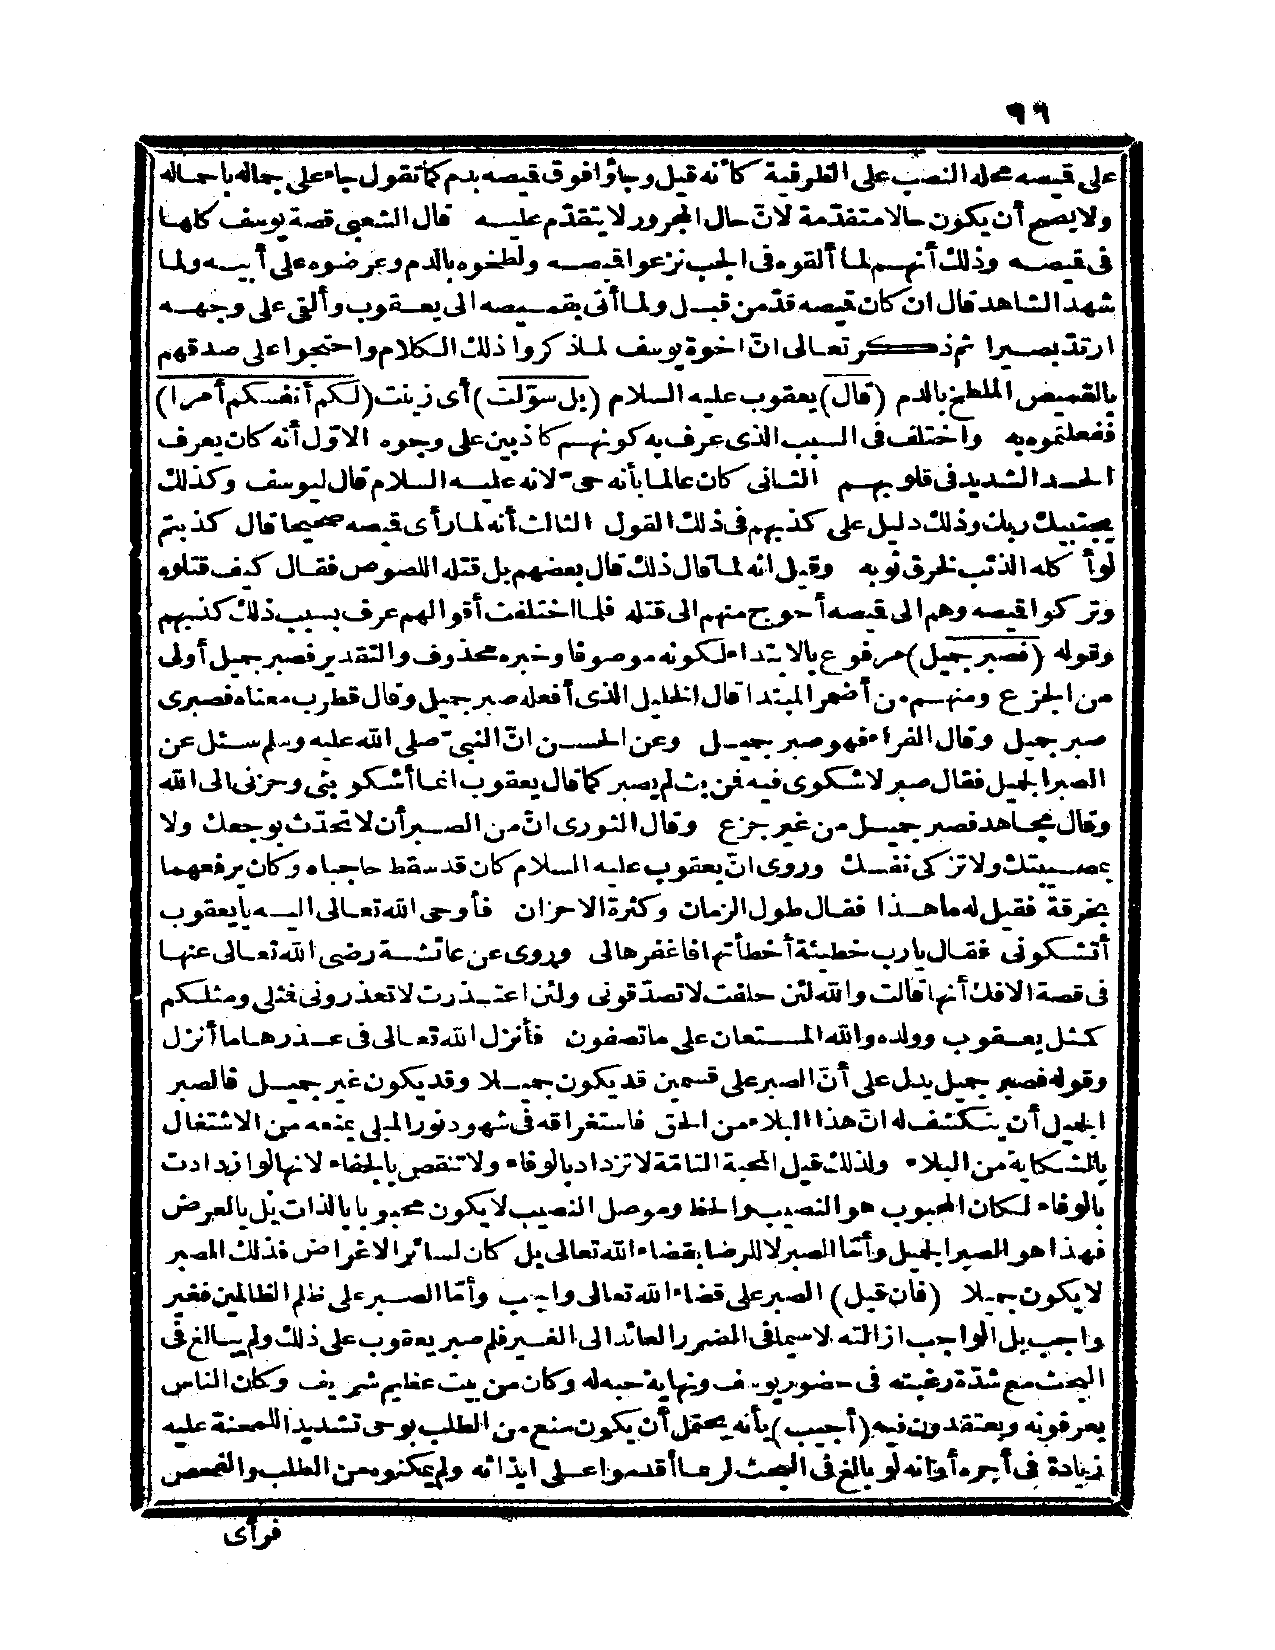 ٩٦
على قميصه محله النصب على الظرفية كأنه قيل وجاؤا فوق قميصه بدم كما تقول جاء على جماله بأحماله
ولا يصح أن يكون حالا متقدمة لانّ حال المجرور لا يتقدّم عليه قال الشعبى قصة يوسف كلها
فى قميصه وذلك أنهم لما ألقوه فى الجب نزعوا قميصه ولطخوه بالدم وعرضوه على أبيه ولما
شهد الشاهد قال ان كان قميصه قدّ من قبل ولما أتى بقميصه الى يعقوب وألقى على وجهه
ارتدّ بصيرا ثم ذكر تعالى انّ اخوة يوسف لما ذكروا ذلك الكلام واحتجوا على صدقهم
بالقميص الملطخ بالدم (قال) يعقوب عليه السلام (بل سوّلت) أى زينت (لكم أنفسكم أمرا)
ففعلتموه به واختلف فى السبب الذى عرف به كونهم كاذبين على وجوه الاوّل أنه كان يعرف
الحسد الشديد فى قلوبهم الثانى كان عالما بأنه حىّ لانه عليه السلام قال ليوسف وكذلك
يجتبيك ربك وذلك دليل على كذبهم فى ذلك القول الثالث أنه لما رأى قميصه صحيحا قال كذبتم
لو أكله الذئب لخرق ثوبه وقيل انه لما قال ذلك قال بعضهم بل قتله اللصوص فقال كيف قتلوه
وتركوا قميصه وهم الى قميصه أحوج منهم الى قتله فلما اختلفت أقوالهم عرف بسبب ذلك كذبهم
وقوله (فصبر جميل) مرفوع بالابتداء لكونه موصوفا وخبره محذوف والتقدير فصبر جميل أولى
من الجزع ومنهم من أضمر المبتدا قال الخليل الذى أفعله صبر جميل وقال قطرب معناه فصبرى
صبر جميل وقال الفراء فهو صبر جميل وعن الحسن انّ النبىّ صلى الله عليه وسلم سئل عن
الصبر الجميل فقال صبر لا شكوى فيه فمن بث لم يصبر كما قال يعقوب انما أشكو بثى وحزنى الى الله
وقال مجاهد فصبر جميل من غير جزع وقال الثورى انّ من الصبر أن لا تحدّث بوجعك ولا
بمصيبتك ولا تزكى نفسك وروى انّ يعقوب عليه السلام كان قد سقط حاجباه وكان يرفعهما
بخرقة فقيل له ما هذا فقال طول الزمان وكثرة الاحزان فأوحى الله تعالى اليه يا يعقوب
أتشكونى فقال يا رب خطيئة أخطأتها فاغفرها لى وروى عن عائشة رضى الله تعالى عنها
فى قصة الافك أنها قالت والله لئن حلفت لا تصدّقونى ولئن اعتذرت لا تعذرونى فمثلى ومثلكم
كمثل يعقوب وولده والله المستعان على ما تصفون فأنزل الله تعالى فى عذرها ما أنزل
وقوله فصبر جميل يدل على أنّ الصبر على قسمين قد يكون جميلا وقد يكون غير جميل فالصبر
الجميل أن ينكشف له انّ هذا البلاء من الحق فاستغراقه فى شهود نور المبلى يمنعه من الاشتغال
بالشكاية من البلاء ولذلك قيل المحبة التامّة لا تزداد بالوفاء ولا تنقص بالجفاء لانها لو ازدادت
بالوفاء لكان المحبوب هو النصيب والحظ وموصل النصيب لا يكون محبوبا بالذات بل بالعرض
فهذا هو الصبر الجميل وأمّا الصبر لا للرضا بقضاء الله تعالى بل كان لسائر الاغراض فذلك الصبر
لا يكون جميلا (فان قيل) الصبر على قضاء الله تعالى واجب وأمّا الصبر على ظلم الظالمين فغير
واجب بل الواجب ازالته لا سيما فى الضرر العائد الى الغير فلم صبر يعقوب على ذلك ولم يبالغ فى
البحث مع شدّة رغبته فى حضور يوسف ونهاية حبه له وكان من بيت عظيم شريف وكان الناس
يعرفونه ويعتقدون فيه (أجيب) بأنه يحتمل أن يكون منع من الطلب بوحى تشديدا للمحنة عليه
زيادة فى أجره أو أنه لو بالغ فى البحث لربما أقدموا على ايذائه ولم يمكنوه من الطلب والتفحص
فرأى